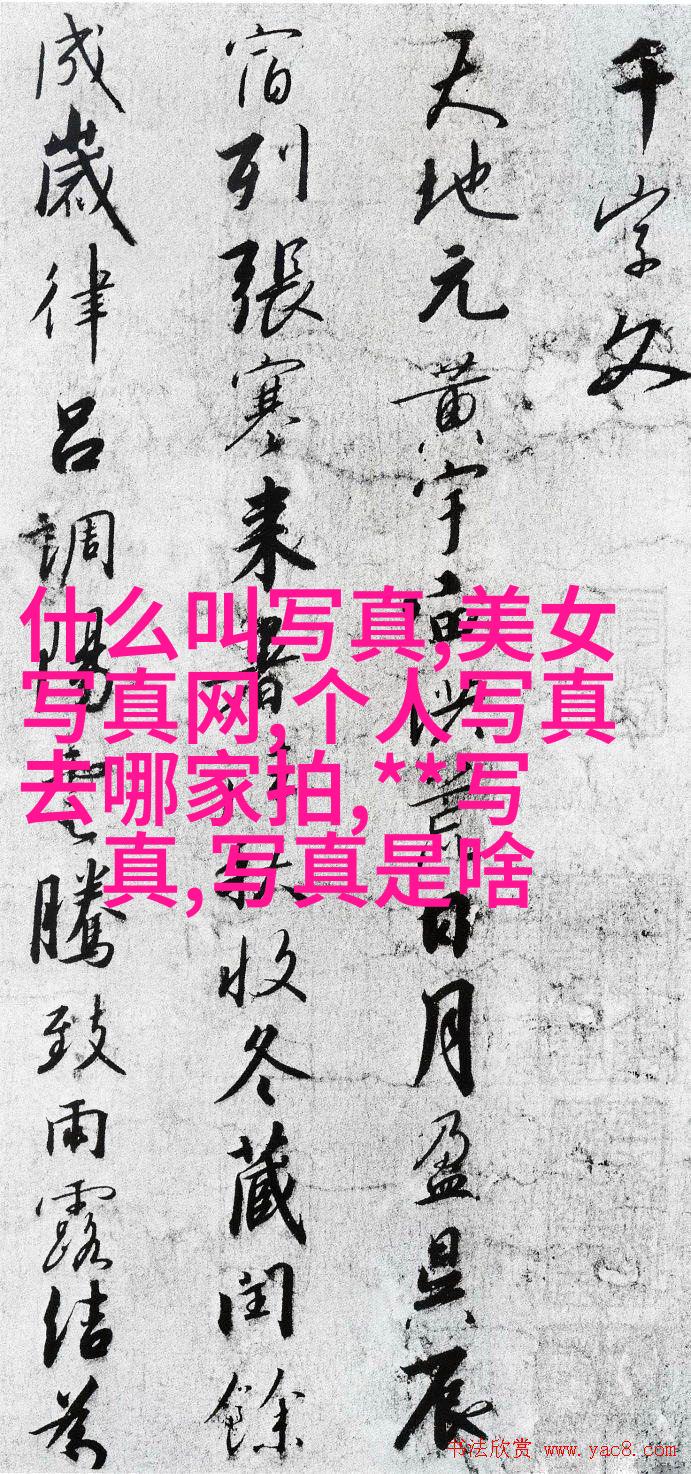 千字文
天地元黄宇宙洪荒日月盈昃辰
宿列張寒来暑往秋收冬蔵閏餘
成歲律吕調陽雲騰致雨露結為
什么叫写真,美女
写真网,个人写真
去哪家拍,**写
真,写真是啥
书法欣赏 www.yac8.com